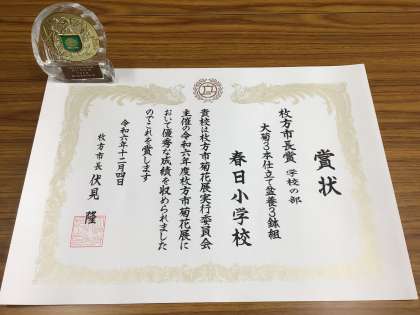 賞状
枚方市長賞 学校の部
大菊3本仕立て盆養3鉢組
春日小学校
貴校は枚方市菊花展実行委員会
主催の令和六年度枚方市菊花展に
おいて優秀な成績を収められました
のでこれを賞します
令和六年十二月四日
枚方市長 伏見 隆